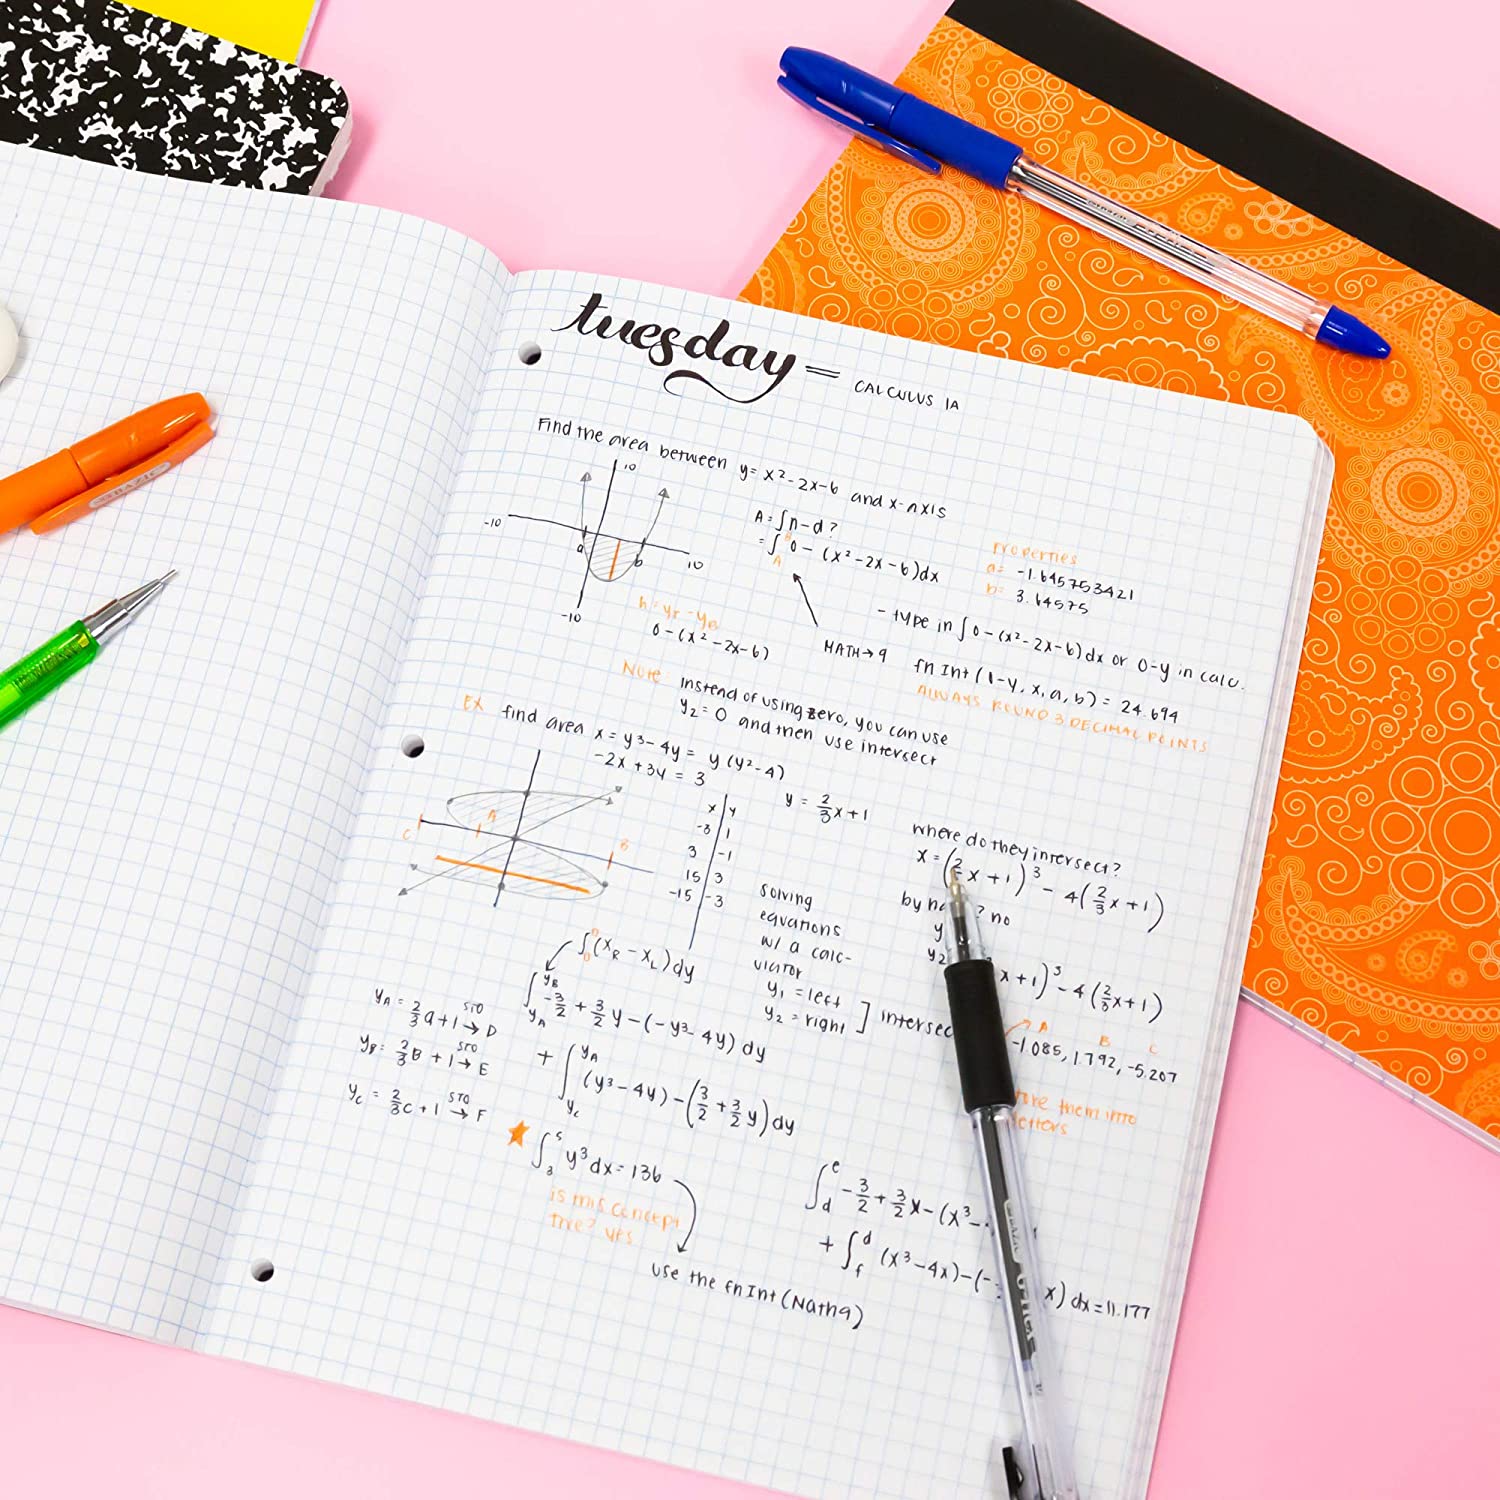 tuesday =
CALCULUS 1A
Find the area between y = x² - 2x - 6 and x-axis
10
-10
a
b
10
-10
A = ∫ n - d ?
= ∫ᴮ_A 0 - (x² - 2x - 6) dx
Properties
a = -1.645753421
b = 3.64575
h = y_T - y_B
0 - (x² - 2x - 6)
MATH → 9
- type in ∫ 0 - (x² - 2x - 6) dx or 0 - y in calc.
fn Int (1-y, x, a, b) = 24.694
ALWAYS ROUND 3 DECIMAL POINTS
Note: instead of using zero, you can use
y₂ = 0 and then use intersect
EX find area x = y³ - 4y = y (y² - 4)
-2x + 3y = 3
y = 2/3 x + 1
C
A
B
x | y
-3 | 1
3 | -1
15 | 3
-15 | -3
where do they intersect?
x = (2/3 x + 1)³ - 4(2/3 x + 1)
by ? no
y
y₂ x + 1)³ - 4(2/3 x + 1)
solving
equations
w/ a calc-
ulator
y₁ = left
y₂ = right ] intersec
A B C
-1.085, 1.792, -5.207
them into
∫ (x_R - x_L) dy
∫_{y_A}^{y_B} -3/2 + 3/2 y - (-y³ - 4y) dy
+ ∫_{y_C}^{y_A} (y³ - 4y) - (3/2 + 3/2 y) dy
y_A = 2/3 a + 1 STO→ D
y_B = 2/3 B + 1 STO→ E
y_C = 2/3 C + 1 STO→ F
∫₃⁵ y³ dx = 136
is this concept
true? yes
use the fn Int (Math 9)
∫_d^e -3/2 + 3/2 x - (x³ -
+ ∫_f^d (x³ - 4x) - (- x) dx = 11.177
BAZIC